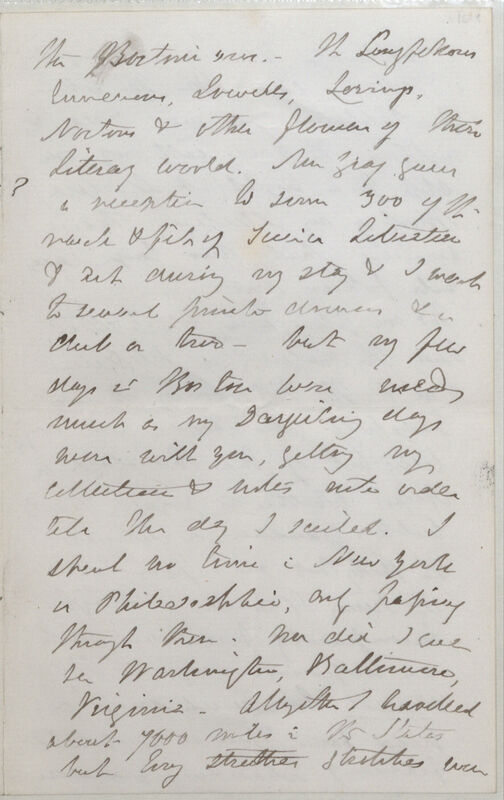 the Bostonians. - The Longfellows
Emersons, Lowells, Lorings,
Nortons & other flowers of their
Literary world. Mrs Gray gave
?
a reception to some 300 of the
rank & file of Science Literature
& Art during my stay & I went
to several private dinners & a
club or two - but my few
days in Boston were
much as my Darjiling days
were with you, getting my
collections & notes into order
till the day I sailed. I
spent no time in New York
or Philadelphia, only passing
through them. Nor did I even
see Washington, Baltimore,
Virginia - Altogether I travelled
about 7000 miles in the States
but long stretches stretches were